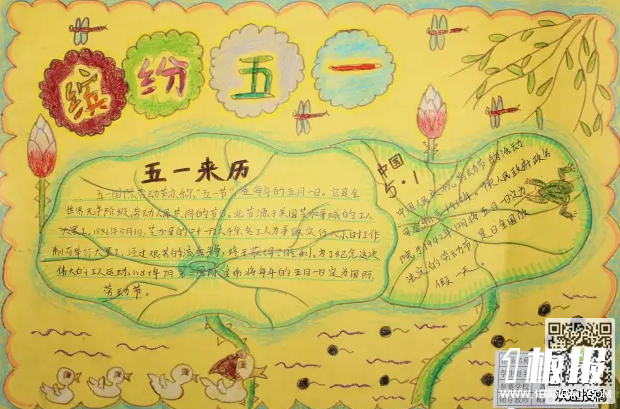 缤纷五一
五一来历
五一国际劳动节亦称"五一节",在每年的五月一日。它是全
世界无产阶级、劳动人民共同的节日。此节源于美国芝加哥城的工人
大罢工,1886年5月1日,芝加哥的二十一万六千余名工人为争取实行八小时工作
制而举行大罢工,经过艰苦的流血斗争,终于获得了胜利。为了纪念这次
伟大的工人运动,1889年7月第二国际宣布将每年的五月一日定为国际
劳动节。
中国
5.1
中国人民庆祝劳动节的活动
法定的劳动节,是日全国放
假一天。